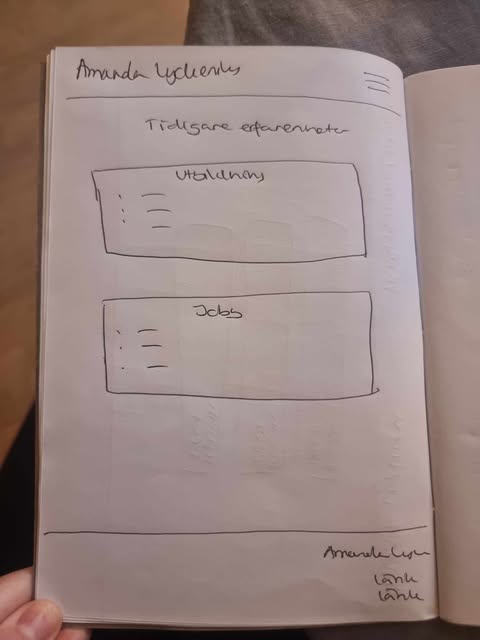 Amanda Lyckenly
Tidigare erfarenheter
Utbildning
Jobb
Amanda
Länk
Länk